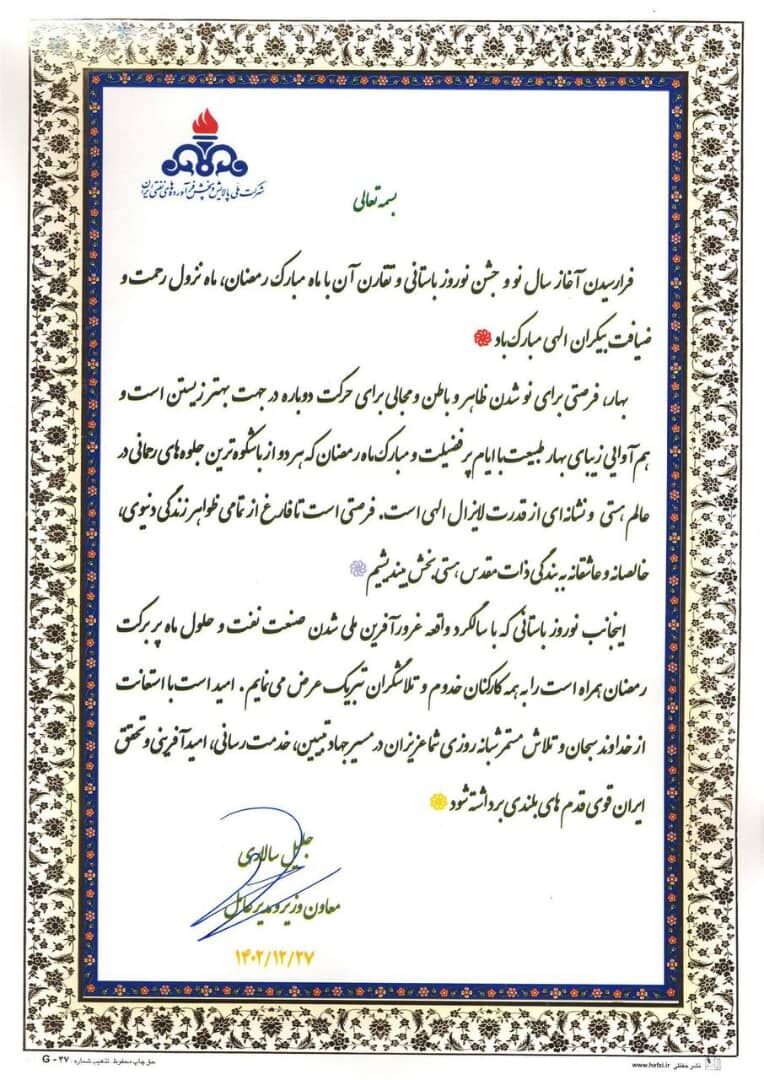 شرکت ملی پالایش و پخش فرآورده های نفتی ایران
بسمه تعالی
فرارسیدن آغاز سال نو و جشن نوروز باستانی و تقارن آن با ماه مبارک رمضان، ماه نزول رحمت و
ضیافت بیکران الهی مبارک باد
بهار، فرصتی برای نو شدن ظاهر و باطن و مجالی برای حرکت دوباره در جهت بهتر زیستن است و
هم آوایی زیبای بهار طبیعت با ایام پر فضیلت و مبارک ماه رمضان که هر دو از باشکوه ترین جلوه های رحمانی در
عالم هستی و نشانه ای از قدرت لایزال الهی است. فرصتی است تا فارغ از تمامی ظواهر زندگی دنیوی،
خالصانه و عاشقانه به بندگی ذات مقدس هستی بخش بیندیشیم
اینجانب نوروز باستانی که با سالگرد واقعه غرورآفرین ملی شدن صنعت نفت و حلول ماه پر برکت
رمضان همراه است را به همه کارکنان خدوم و تلاشگران تبریک عرض می نمایم. امید است با استعانت
از خداوند سبحان و تلاش مستمر شبانه روزی شما عزیزان در مسیر جهاد تبیین، خدمت رسانی، امیدآفرینی و تحقق
ایران قوی قدم های بلندی برداشته شود
جلیل سالاری
معاون وزیر و مدیر عامل
۱۴۰۲/۱۲/۲۷
نشر حفظی www.hefzi.ir
حق چاپ محفوظ تذهیب شماره: G - ۲۷